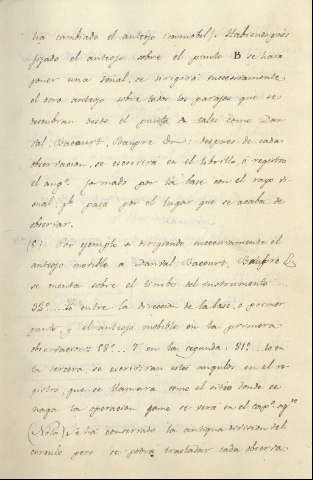 ha cambiado el anteojo inmobil). Habiendo pues
fijado el anteojo sobre el punto B se hara
poner una señal, se dirigirá succesivamente
el otro anteojo sobre todos los parajes que se
descubran desde el punto A tales como Dan
dal, Bacourt, Baupre &; despues de cada
observacion, se escrivirá en el librillo ó registro
el angº formado por la base con el rayo vi
sual qº pasa por el lugar que se acaba de
observar.
Por ejemplo dirigiendo succesivamente el
anteojo mobile a Dandal, Bacourt, Baupre &
se cuenta sobre el limbo del instrumento
32º entre la direccion de la base, o primer
punto, y el anteojo mobible en la primera
observacion: 58º en la segunda: 81º en
la tercera, se escriviran estos angulos en el re
gistro, que se llamara como el sitio donde se
haga la operacion como se verá en el capº
(Nota) Se ha conservado la antigua division del
circulo pero se podra trasladar cada observa